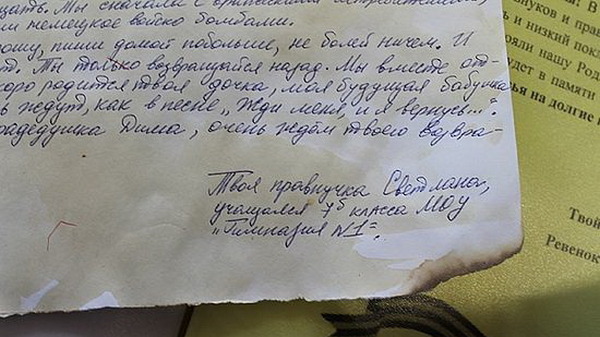 щать. Мы сначала с
ли немецкое войско бомбами.
рошу, пиши домой побольше, не болей ничем. И
т. Ты только возвращайся назад. Мы вместе от-
коро родится твоя дочка, моя будущая бабушка
ь ждут, как в песне „Жди меня, и я вернусь...".
прадедушка Дима, очень ждём твоего возвра-
Твоя правнучка Светлана,
учащаяся 7б класса МОУ
„Гимназия №1".
ша! В
нуков и пра
и низкий покл
ояли нашу Род
дет в памяти
ья на долгие г
Твой
Ревенок